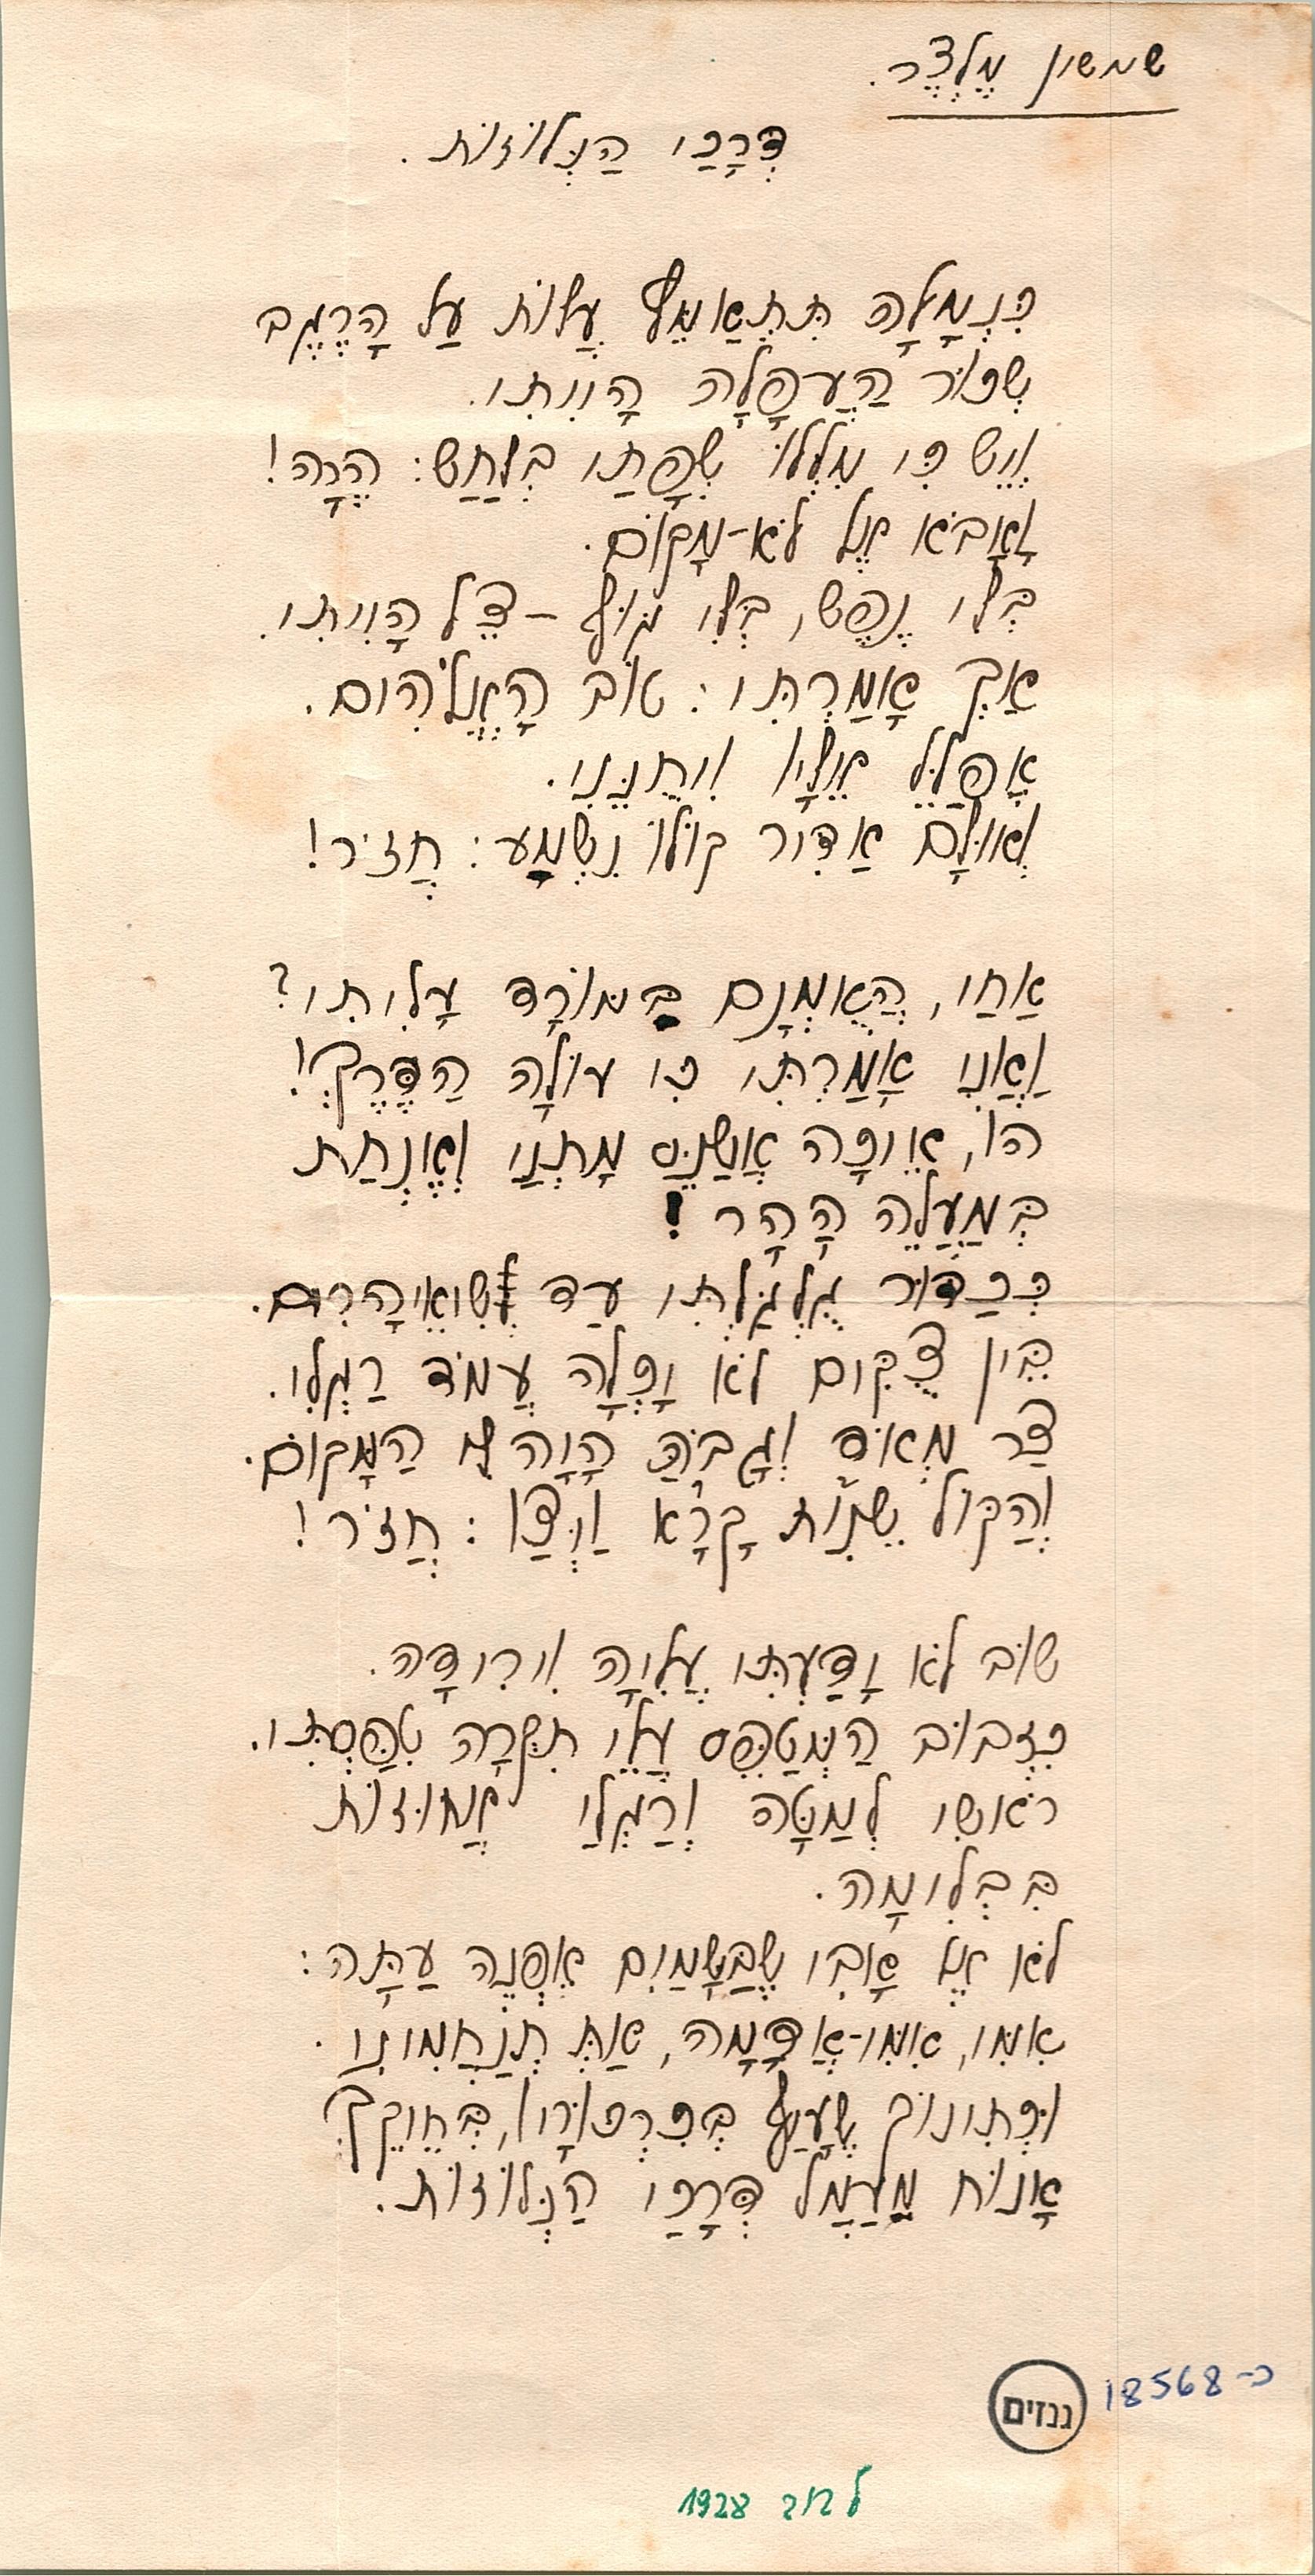 שמשון מֶלְצֶר.
דְּרָכַי הַנְּלוֹזוֹת.
כִּנְמָלָה תִּתְאַמֵּץ עֲלוֹת עַל הָרֶגֶב
שְׁכּוּר הַעְפָּלָה הָיִיתִי.
וְיֵשׁ כִּי מִלְלוּ שְׂפָתַי בְּלַחַשׁ: הֶרָה!
וָאָבֹא אֶל לֹא-מָקוֹם.
בְּלִי נֶפֶשׁ, בְּלִי גוּף – צֵל הָיִיתִי.
אַךְ אָמַרְתִּי: טוֹב הָאֱלֹהִים.
אֲפַלֵּל אֵלָיו וִיחֻנֵּנִי.
וְאוּלָם אַדִּיר קוֹלוֹ נִשְׁמַע: חֲזֹר!
אַחַי, הַאֻמְנָם בַּמּוֹרָד עָלִיתִי?
וַאֲנִי אָמַרְתִּי כִּי עוֹלָה הַדֶּרֶךְ!
הוֹ, אֵיכָה אֲשַׁנֵּס מָתְנַי וְאֶנְחַת
בְּמַעֲלֵה הָהָר!
כְּכַדּוּר גֻּלְגַּלְתִּי עַד לְשִׂיאֵי הָרִים.
בֵּין צֻקִּים לֹא יָכְלָה עֲמֹד רַגְלִי.
צַר מְאֹד וְגָבֹהַּ הָיָה לִי הַמָּקוֹם.
וְהַקּוֹל שֵׁנִית קָרָא וַיְצַו: חֲזֹר!
שׁוּב לֹא יָדַעְתִּי עֲלִיָּה וִירִידָה.
כִּזְבוּב הַמְטַפֵּס עֲלֵי תִקְרָה טִפַּסְתִּי.
רֹאשִׁי לְמַטָּה וְרַגְלַי אֲחוּזוֹת
בִּבְלִימָה.
לֹא אֶל אָבִי שֶׁבַּשָּׁמַיִם אֶפְנֶה עַתָּה:
אִמִּי, אִמִּי-אֲדָמָה, אַתְּ תְּנַחֲמִינִי.
וּכְתִינוֹק שֶׁעָיֵף בְּפִרְפּוּרָיו, בְּחֵיקֵךְ
אָנוּחַ מֵעֲמַל דְּרָכַי הַנְּלוֹזוֹת.
כ- 18568
גנזים
לבוב 1928